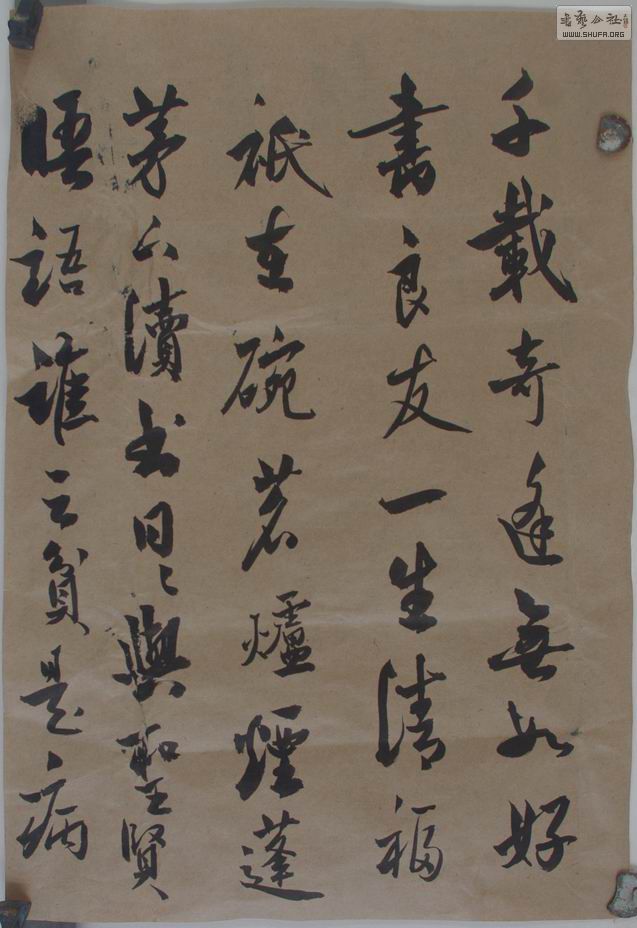 千載奇逢無如好
書良友一生清福
祇在碗茗爐煙蓬
茅下讀书日〻與聖賢
晤語誰云貧是病
书艺公社
WWW.SHUFA.ORG